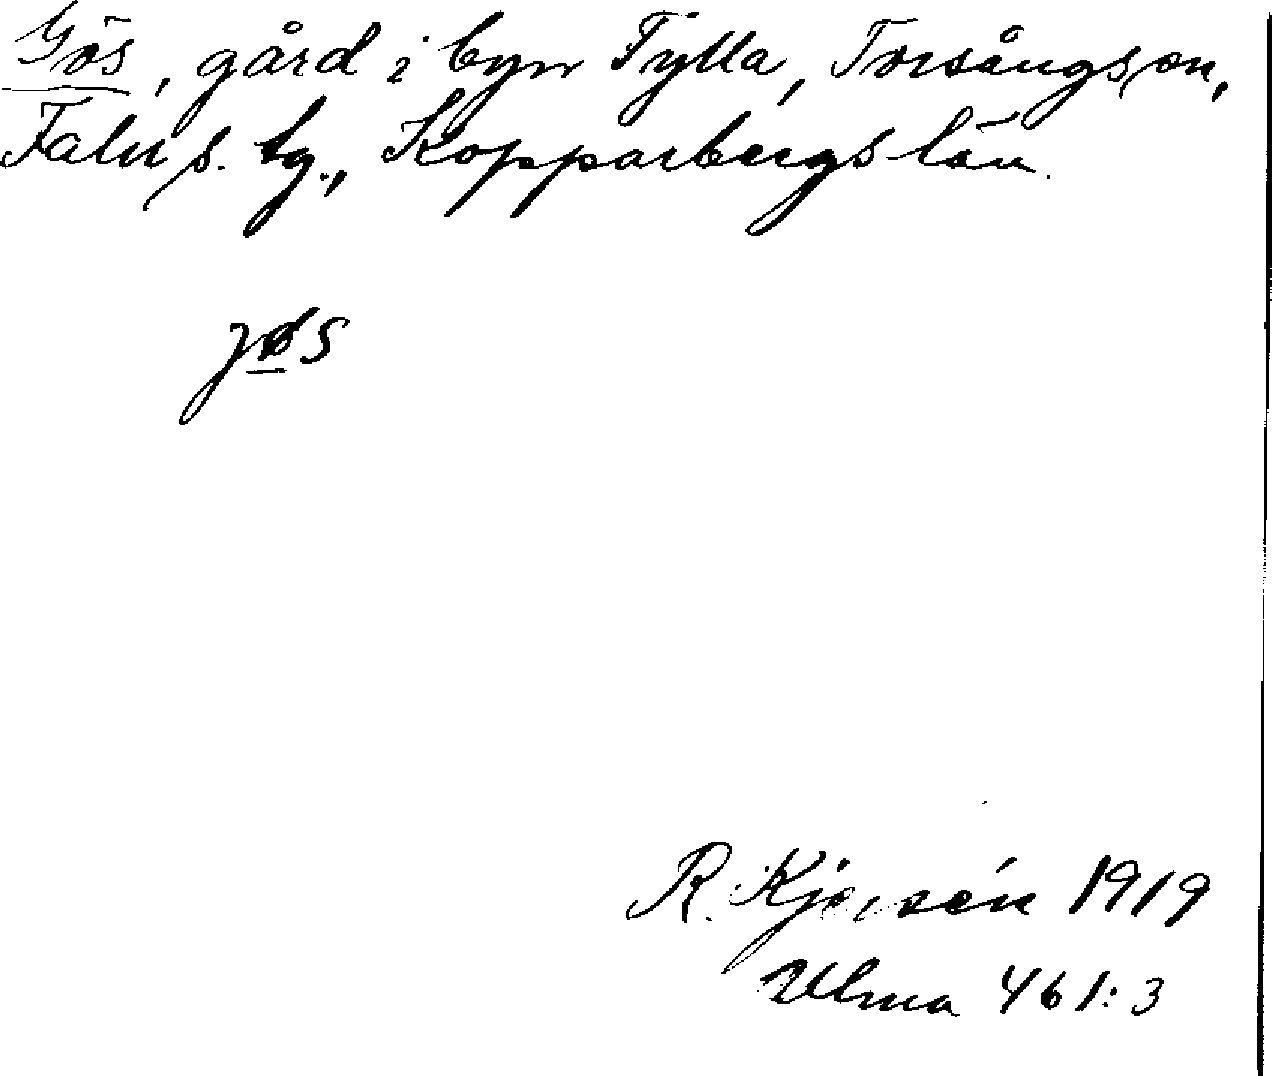 Gös, gård i byn Tylla, Torsångs sn,
Falu s. tg., Kopparbergs län.
jøs
R. Kjersén 1919
Ulma 461:3